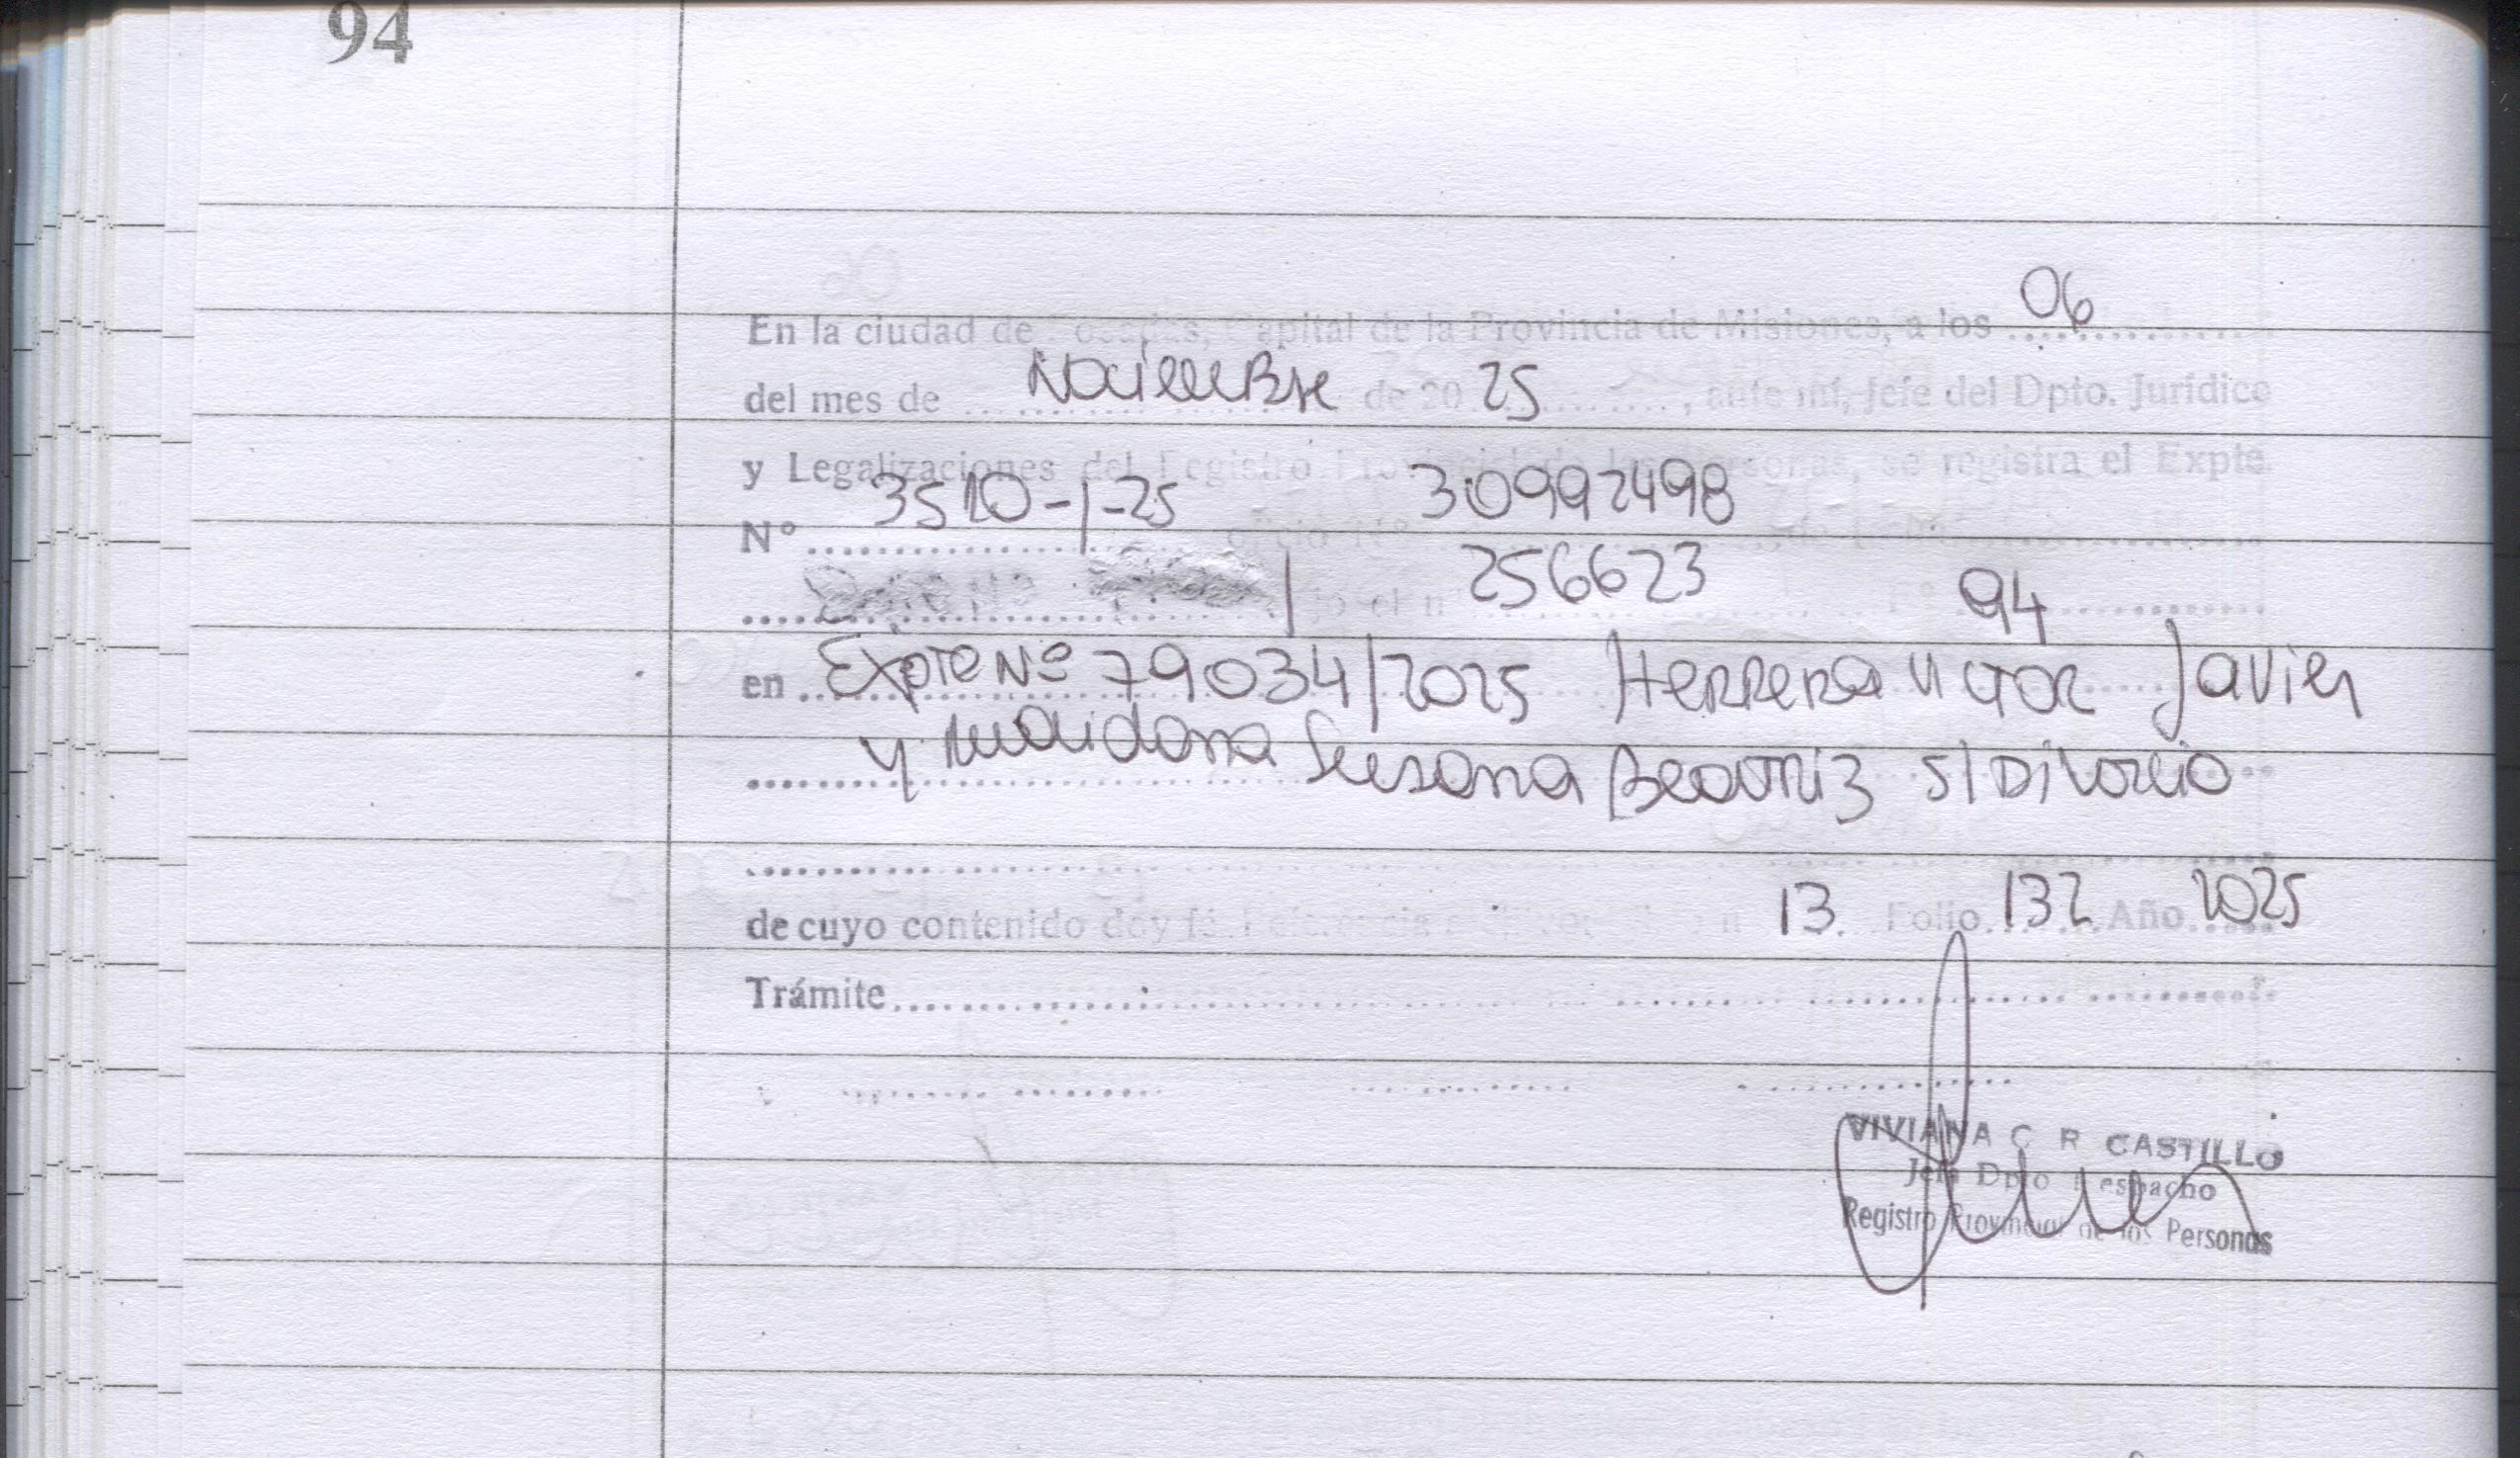 94
En la ciudad de Posadas, Capital de la Provincia de Misiones, a los 06
del mes de Noviembre de 20 25, ante mí, Jefe del Dpto. Jurídico
y Legalizaciones del Registro Provincial de las Personas, se registra el Expte.
Nº 3510-1-25 oficio Nº 30992498
bajo el nº 256623 94
en Expte Nº 79034/2025 Herrera Victor Javier
y Maidana Susana Beatriz s/Divorcio
de cuyo contenido doy fé. Referencia 13. Folio 132 Año 2025
Trámite
VIVIANA C R CASTILLO
Jefa Dpto Despacho
Registro Provincial de las Personas